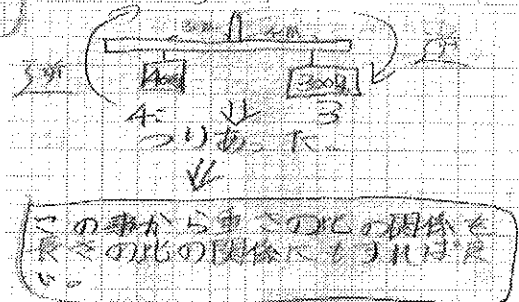 3cm 4cm
400g 300g
4: 3
つりあった。
この事から重さの比の関係を
長さの比の関係にもすれば良
い。